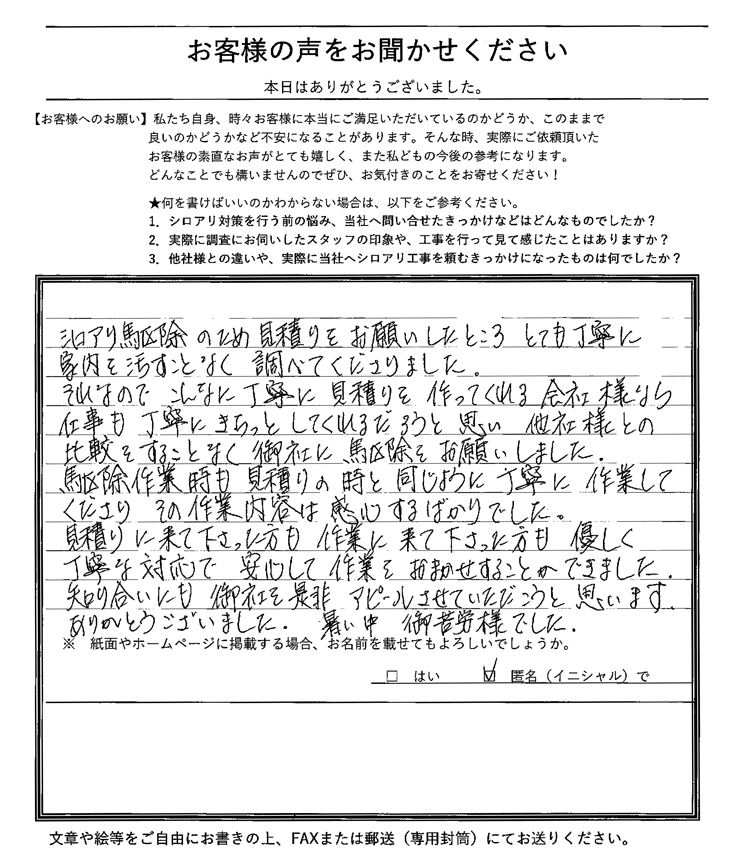 お客様の声をお聞かせください
本日はありがとうございました。
【お客様へのお願い】私たち自身、時々お客様に本当にご満足いただいているのかどうか、このままで
良いのかどうかなど不安になることがあります。そんな時、実際にご依頼頂いた
お客様の素直なお声がとても嬉しく、また私どもの今後の参考になります。
どんなことでも構いませんのでぜひ、お気付きのことをお寄せください！
★何を書けばいいのかわからない場合は、以下をご参考ください。
1. シロアリ対策を行う前の悩み、当社へ問い合せたきっかけなどはどんなものでしたか？
2. 実際に調査にお伺いしたスタッフの印象や、工事を行って見て感じたことはありますか？
3. 他社様との違いや、実際に当社へシロアリ工事を頼むきっかけになったものは何でしたか？
シロアリ駆除のため見積りをお願いしたところ とても丁寧に
家内を汚すことなく 調べてくださりました。
それなので こんなに丁寧に見積りを作ってくれる会社様なら
仕事も丁寧にきちっとしてくれるだろうと思い 他社様との
比較をすることなく御社に駆除をお願いしました.
駆除作業時も見積りの時と同じように丁寧に作業して
くださり その作業内容は感心するばかりでした。
見積りに来て下さった方も 作業に来て下さった方も 優しく
丁寧な対応で 安心して作業をおまかせすることができました.
知り合いにも 御社を是非 アピールさせていただこうと思います.
ありがとうございました. 暑い中 御苦労様でした.
※ 紙面やホームページに掲載する場合、お名前を載せてもよろしいでしょうか。
□ はい ☑ 匿名（イニシャル）で
文章や絵等をご自由にお書きの上、FAXまたは郵送（専用封筒）にてお送りください。